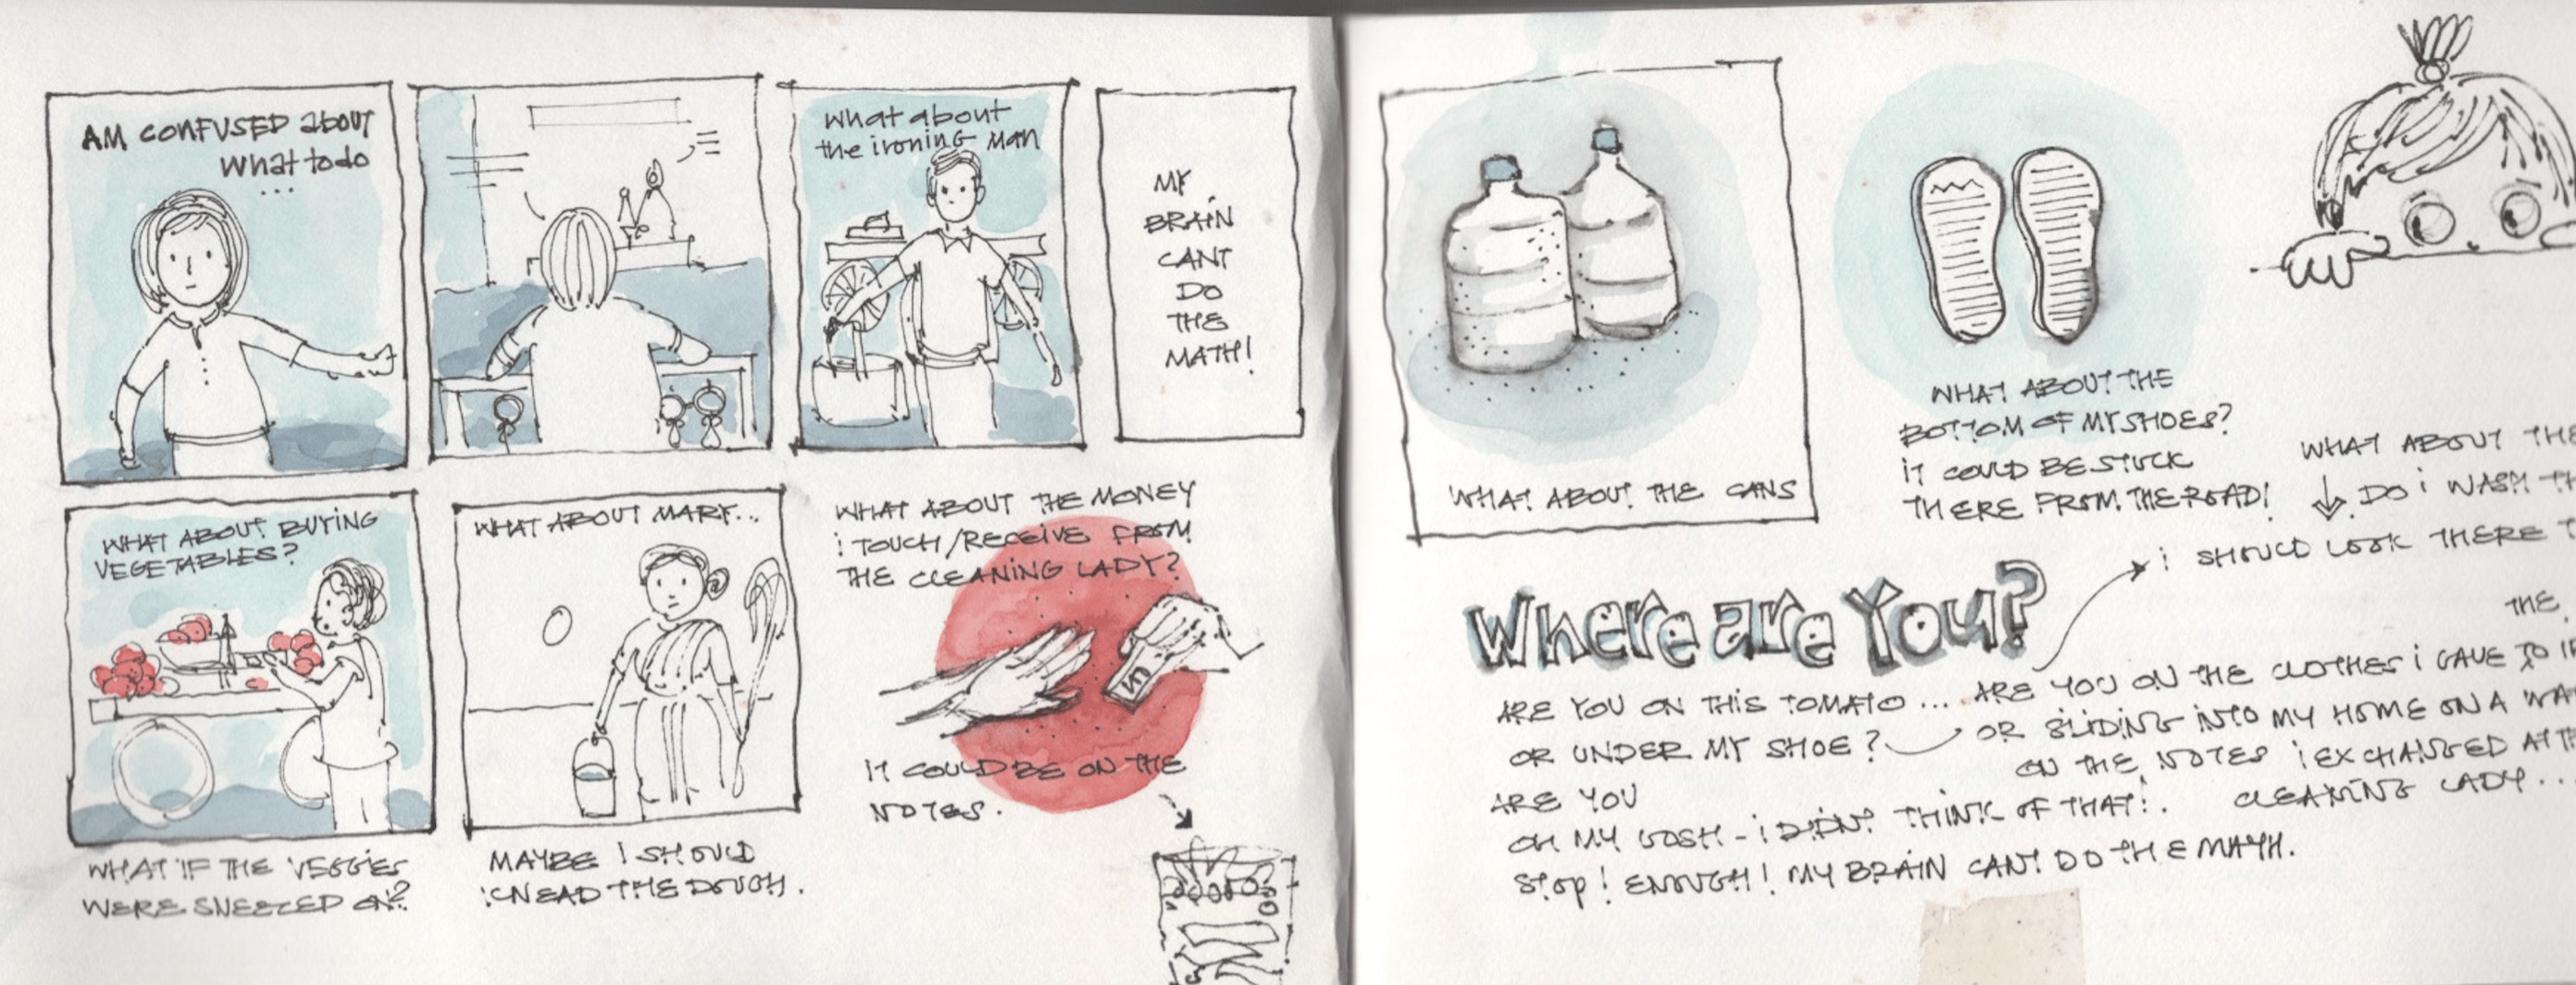 AM CONFUSED about
what to do
...
what about
the ironing man
MY
BRAIN
CANT
DO
THE
MATH!
WHAT ABOUT BUYING
VEGETABLES?
WHAT IF THE VEGGIES
WERE SNEEZED ON?
WHAT ABOUT MARY...
MAYBE I SHOULD
KNEAD THE DOUGH.
WHAT ABOUT THE MONEY
I TOUCH/RECEIVE FROM
THE CLEANING LADY?
IT COULD BE ON THE
NOTES.
WHAT ABOUT THE CANS
WHAT ABOUT THE
BOTTOM OF MY SHOES?
IT COULD BE STUCK
THERE FROM THE ROAD!
WHAT ABOUT THE
DO I WASH TH
I SHOULD LOOK THERE
THE
Where are You?
ARE YOU ON THIS TOMATO ... ARE YOU ON THE CLOTHES I GAVE TO
OR UNDER MY SHOE? OR SLIDING INTO MY HOME ON A WA
ON THE NOTES I EXCHANGED AT
ARE YOU
CLEANING LADY...
OH MY GOSH - I DIDN'T THINK OF THAT!.
STOP! ENOUGH! MY BRAIN CAN'T DO THE MATH.